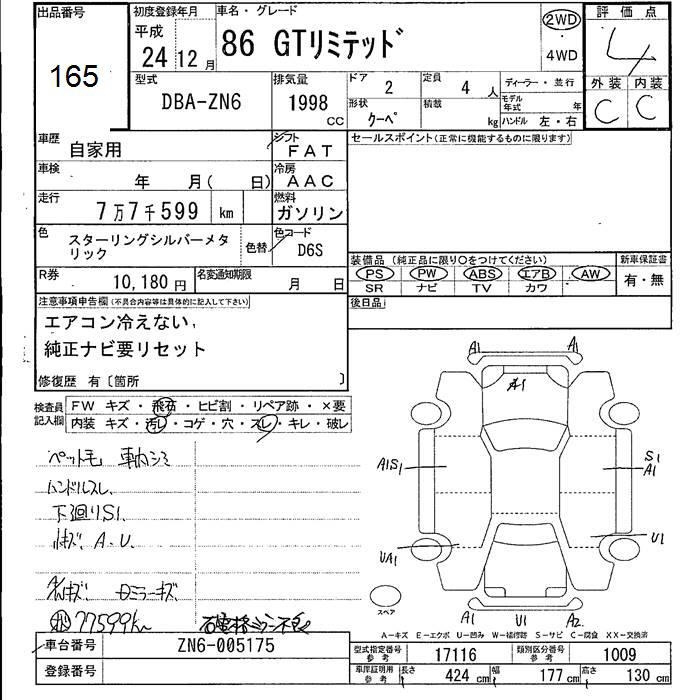 出品番号 初度登録年月 車名・グレード 2WD 評価点
165 平成 24 12月 86 GTリミテッド 4WD 4
型式 排気量 ドア 定員 ディーラー・並行 外装 内装
DBA-ZN6 1998 CC 2 4人 モデル年式 年 C C
形状 積載 ハンドル 左・右
クーペ kg
車歴 シフト セールスポイント(正常に機能するものに限ります)
自家用 FAT
車検 年 月( 日) 冷房 AAC
走行 7万7千599 km 燃料 ガソリン
色 スターリングシルバーメタリック 色替 色コード D6S
装備品(純正品に限り○をつけてください) 新車保証書
PS PW ABS エアB AW 有・無
SR ナビ TV カワ
R券 10,180円 名変通知期限 月 日
後日品
注意事項申告欄(不具合内容等は具体的に記入して下さい)
エアコン冷えない,
純正ナビ要リセット
修復歴 有〔箇所 〕
検査員記入欄 FW キズ・飛石・ヒビ割・リペア跡・×要
内装 キズ・汚レ・コゲ・穴・スレ・キレ・破レ
ペット毛 車内シミ
ハンドルスレ
下廻りS1.
小キズ A.U.
ミラーキズ
77599km
A1 A1
A1
A1S1 S1
A1
UA1 U1
スペア
A1 U1 A2
A-キズ E-エクボ U-凹み W-補修跡 S-サビ C-腐食 XX-交換済
車台番号 ZN6-005175
型式指定番号 参考 17116 類別区分番号 参考 1009
登録番号
車庫証明用 参考 長さ 424 cm 幅 177 cm 高さ 130 cm